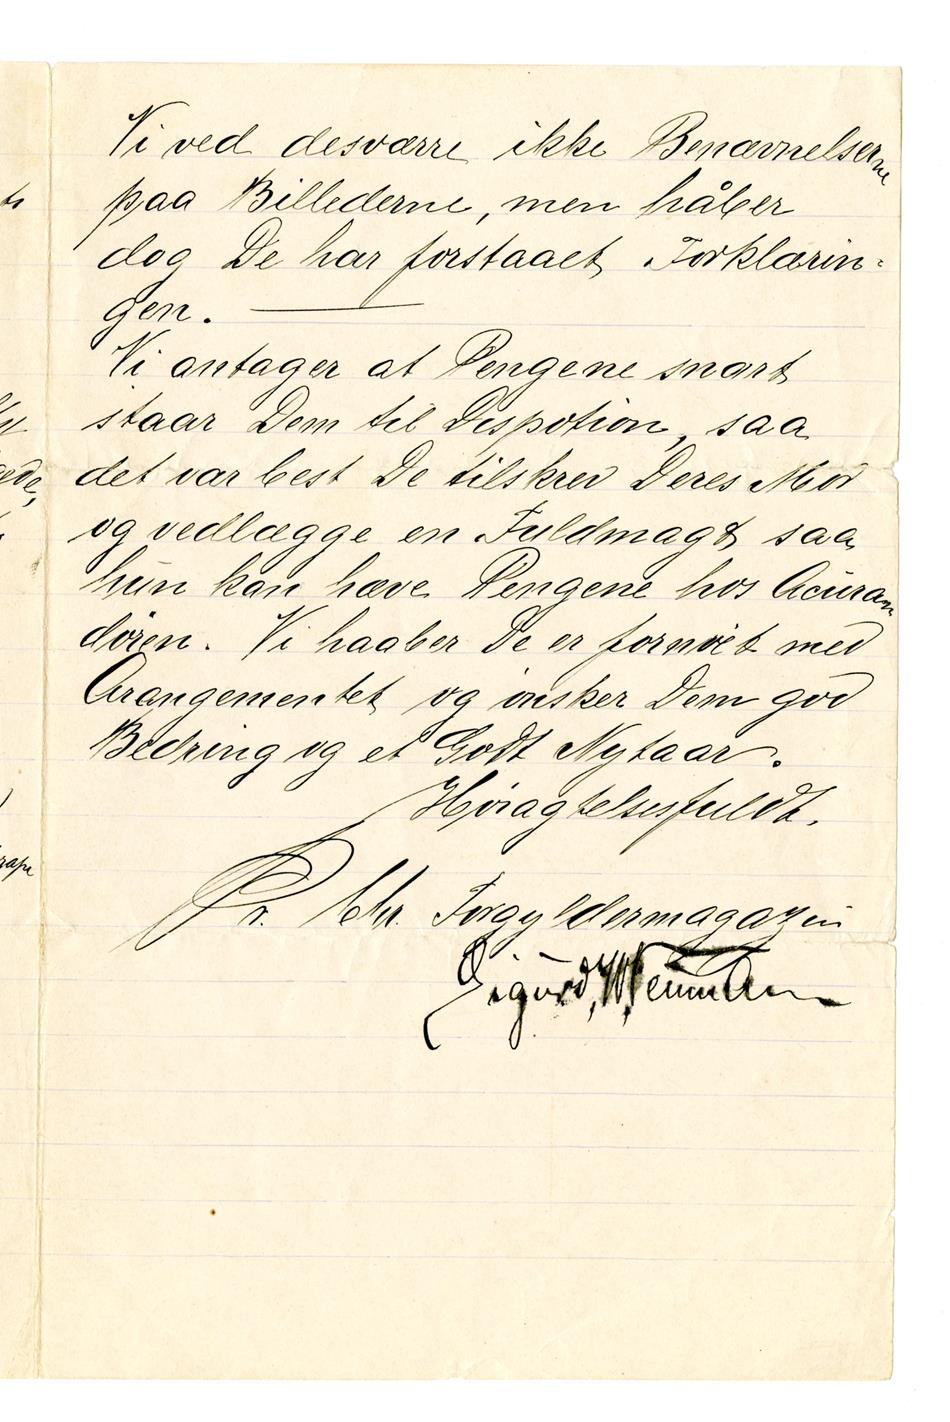 Vi ved desværre ikke Benævnelserne
paa Billederne, men håber
dog De har forstaaet Forklarin-
gen. —
Vi antager at Pengene snart
staar Dem til Dispotion, saa
det var best De tilskrev Deres Mor
og vedlægge en Fuldmagt saa
hun kan hæve Pengene hos Acuran
døren. Vi haaber De er fornøiet med
Arangementet og ønsker Dem god
Bedring og et Godt Nytaar.
Høiagtelsesfuldt.
Pr. Chr. Forgyldermagazin
Sigurd